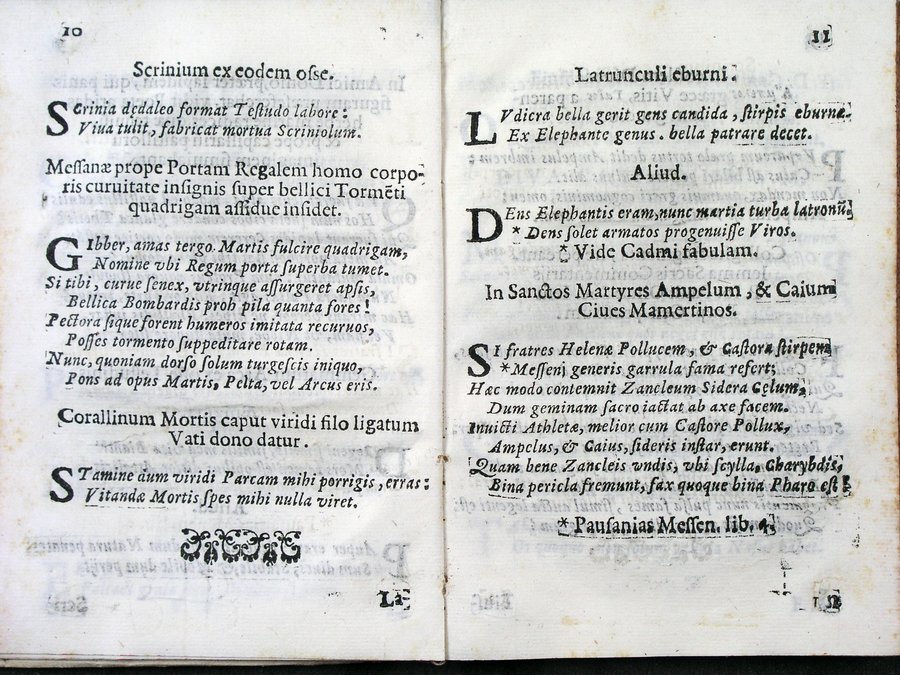 10
Scrinium ex eodem osse.
SCrinia dędaleo format Testudo labore:
Viua tulit, fabricat mortua Scriniolum.
Messanæ prope Portam Regalem homo corpo-
ris curuitate insignis super bellici Tormēti
quadrigam assidue insidet.
GIbber, amas tergo Martis fulcire quadrigam,
Nomine vbi Regum porta superba tumet.
Si tibi, curue senex, vtrinque assurgeret apsis,
Bellica Bombardis proh pila quanta fores!
Pectora sique forent humeros imitata recuruos,
Posses tormento suppeditare rotam.
Nunc, quoniam dorso solum turgescis iniquo,
Pons ad opus Martis, Pelta, vel Arcus eris.
Corallinum Mortis caput viridi filo ligatum
Vati dono datur.
STamine dum viridi Parcam mihi porrigis, erras:
Vitandæ Mortis spes mihi nulla viret.
La-
11
Latrunculi eburni.
LVdicra bella gerit gens candida, stirpis eburnæ.
Ex Elephante genus. bella patrare decet.
Aliud.
DEns Elephantis eram, nunc martia turba latronū:
* Dens solet armatos progenuisse Viros.
* Vide Cadmi fabulam.
In Sanctos Martyres Ampelum, & Caium
Ciues Mamertinos.
SI fratres Helenæ Pollucem, & Castora stirpem
*Messenj generis garrula fama refert;
Hac modo contemnit Zancleum Sidera Cęlum,
Dum geminam sacro iactat ab axe facem.
Inuicti Athletæ, melior cum Castore Pollux,
Ampelus, & Caius, sideris instar, erunt.
Quam bene Zancleis vndis, vbi scylla, Charybdis,
Bina pericla fremunt, fax quoque bina Pharo est!
* Pausanias Messen. lib. 4.